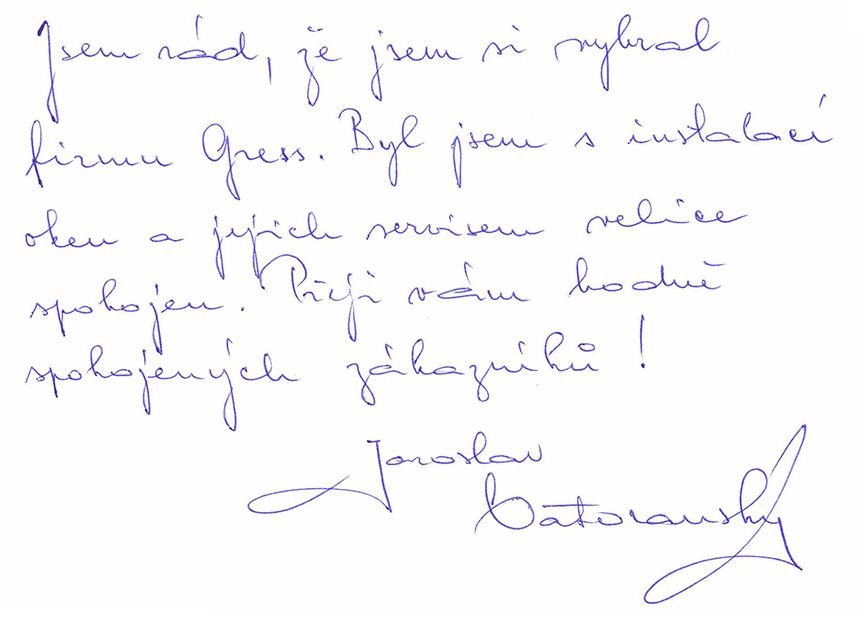 Jsem rád, že jsem si vybral
firmu Gress. Byl jsem s instalací
oken a jejich servisem velice
spokojen. Přeji vám hodně
spokojených zákazníků!
Jaroslav